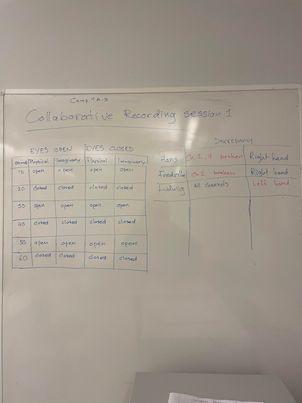 Collaborative Recording session 1
EYES OPEN EYES CLOSED
Physical Imaginary Physical Imaginary
10 open open open open
20 closed closed closed closed
30 open open open open
40 closed closed closed closed
50 open open open open
60 closed closed closed closed
Discrepancy
Hans broken Right hand
Ch 1 broken Right hand
Ludwig All channels Left hand